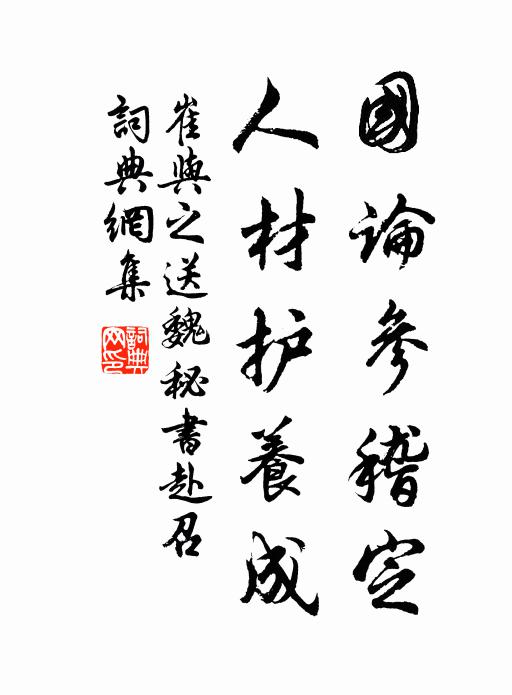 國論參稽定
人材护養成
崔與之送魏秘書赴召
詞典網集
詞典网印